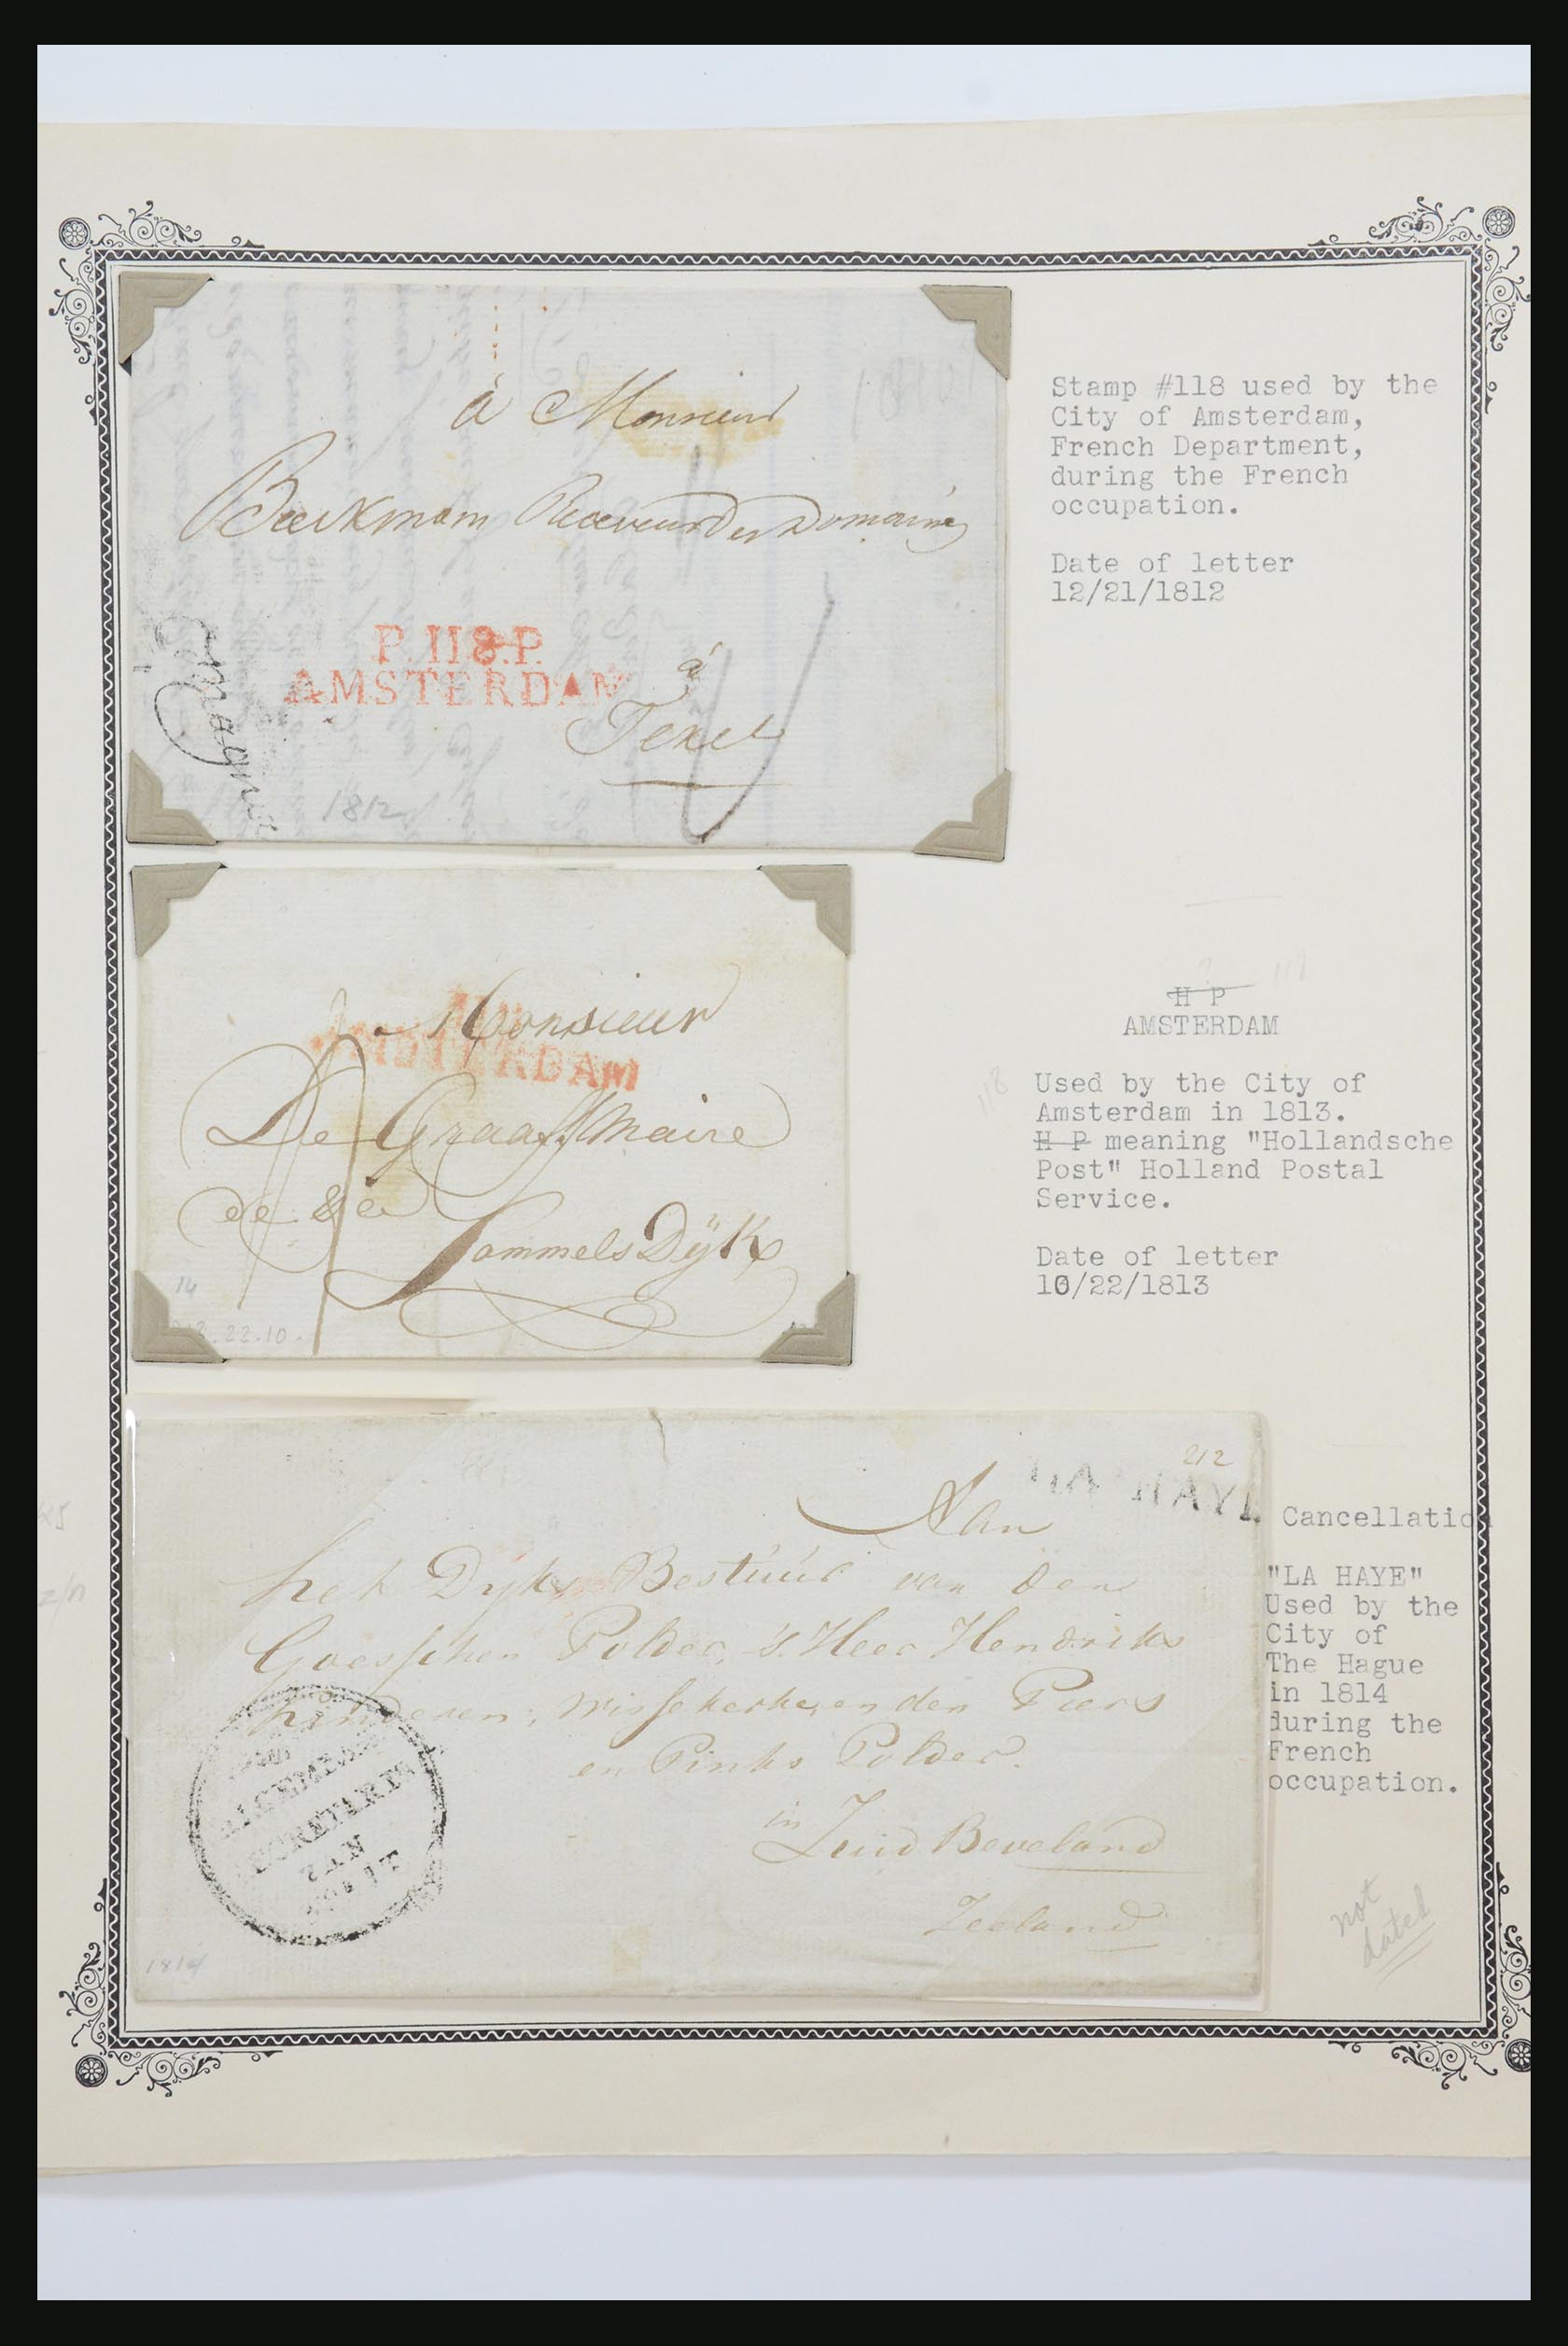 à Monsieur
Beekman Receveur Des Domaines
P.118.P.
AMSTERDAM
à
Texel
1812
Stamp #118 used by the
City of Amsterdam,
French Department,
during the French
occupation.
Date of letter
12/21/1812
Monsieur
AMSTERDAM
De Graaff Maire
de &a &a
SommelsDÿk
14
22.10.
118
H P
AMSTERDAM
118
Used by the City of
Amsterdam in 1813.
H P meaning "Hollandsche
Post" Holland Postal
Service.
Date of letter
10/22/1813
212
LA HAYE
Aan
het Dyks Bestuur van den
Goesschen Polder, 's Heer Hendriks
kinderen, Wissekerke, en den Paers
en Pinks Polder.
in
Zuid Beveland
Zeeland
ALGEMEENE
SECRETARIE
VAN
STAAT
1814
Cancellation
"LA HAYE"
Used by the
City of
The Hague
in 1814
during the
French
occupation.
not
dated
z/n